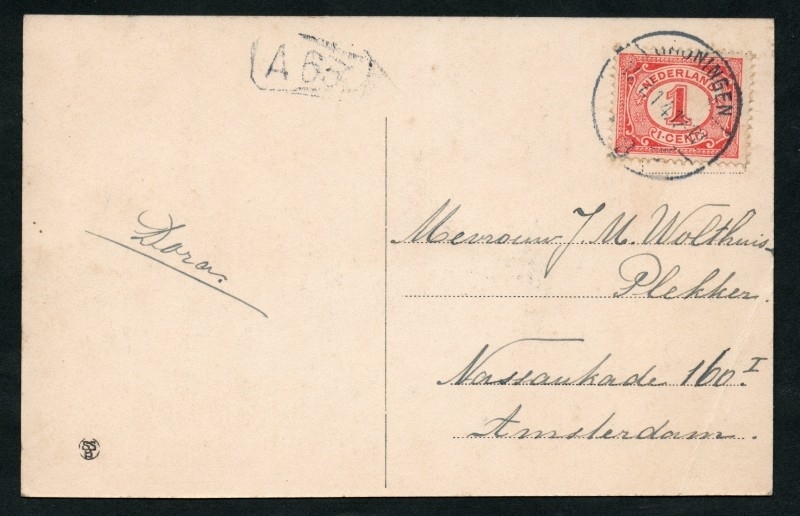 A 63
GRONINGEN
NEDERLAND
1
1 CENT
Dora.
Mevrouw J. M. Wolthuis-
Plekker.
Nassaukade 160.I
Amsterdam.
SS
B